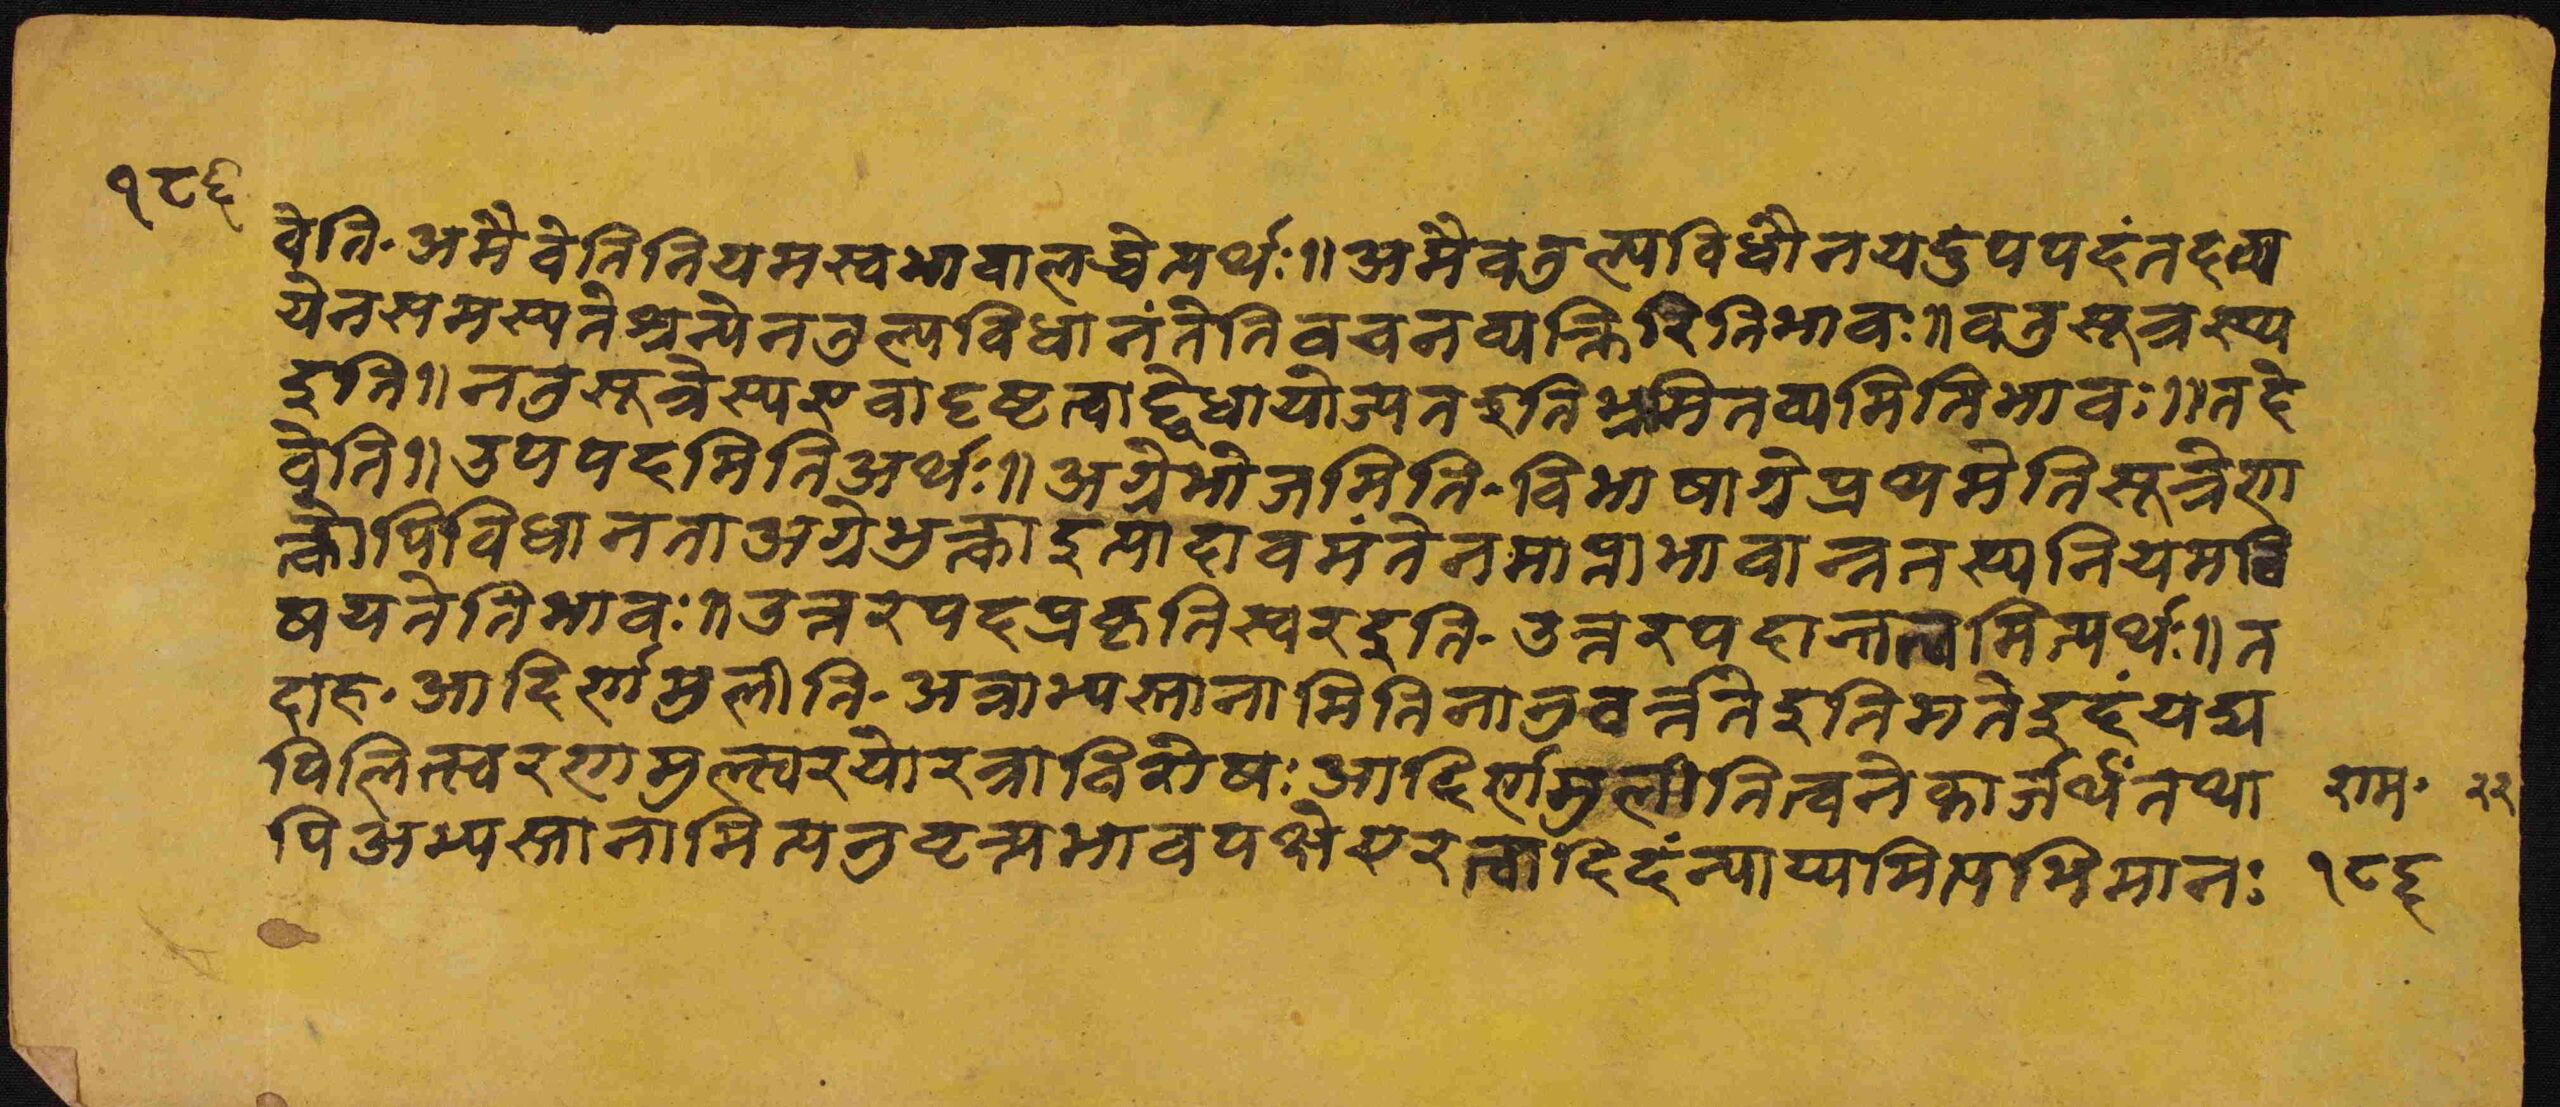 १८६
वेति॰ अमैवेतिनियमस्वभावालच्चेत्यर्थः॥ अमैवतुल्यविधौनयदुपपदंतदव्य
येनसमस्यतेअन्येनतुल्यविधानंतेतिवचनव्यक्तिरितिभावः॥ वतुसूत्रस्य
इति॥ नतुसूत्रेस्यएवादृष्टत्वाद्द्वेधायोज्यतइतिभ्रमितव्यमितिभावः॥ तदे
वेति॥ उपपदमितिअर्थः॥ अग्रेभोजमिति॰ विभाषाग्रेप्रथमेतिसूत्रेणा
त्कोपिविधानताअग्रेभुक्त्वाइत्यादावमंतेनमात्राभावान्नतस्यनियमवि
षयतेतिभावः॥ उत्तरपदप्रकृतिस्वरइति॰ उत्तरपदान्तत्वमित्यर्थः॥ त
दाह॰ आदिर्णमुलीति॰ अत्राभ्यस्तानामितिनानुवर्त्ततेइतिमतेइदंयद्य
पिलित्स्वरणमुल्स्वरयोरत्राविशेषः आदिर्णमुलीतित्वनेकाजर्थंतथा राम॰ २२
पिअभ्यस्तानामित्यनुवृत्यभावपक्षेपरत्वादिदंन्याय्यमित्यभिमानः १८६